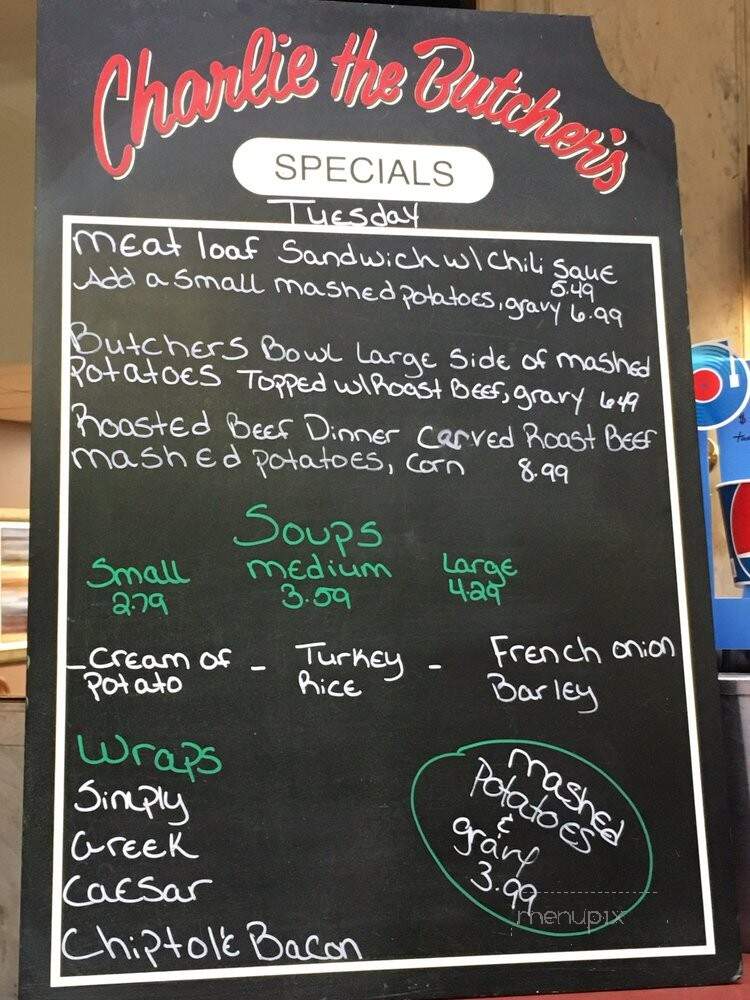 Charlie the Butcher's
SPECIALS
Tuesday
meat loaf Sandwich w/ Chili Saue
5.49
Add a Small mashed potatoes, gravy 6.99
Butchers Bowl Large Side of mashed
Potatoes Topped w/ Roast Beef, gravy 6.49
Roasted Beef Dinner Carved Roast Beef
mashed potatoes, Corn 8.99
Soups
Small medium Large
2.79 3.59 4.29
- Cream of - Turkey - French onion
Potato Rice Barley
Wraps
Simply
Greek
Caesar
Chiptole Bacon
mashed
Potatoes
&
gravy
3.99
menupix